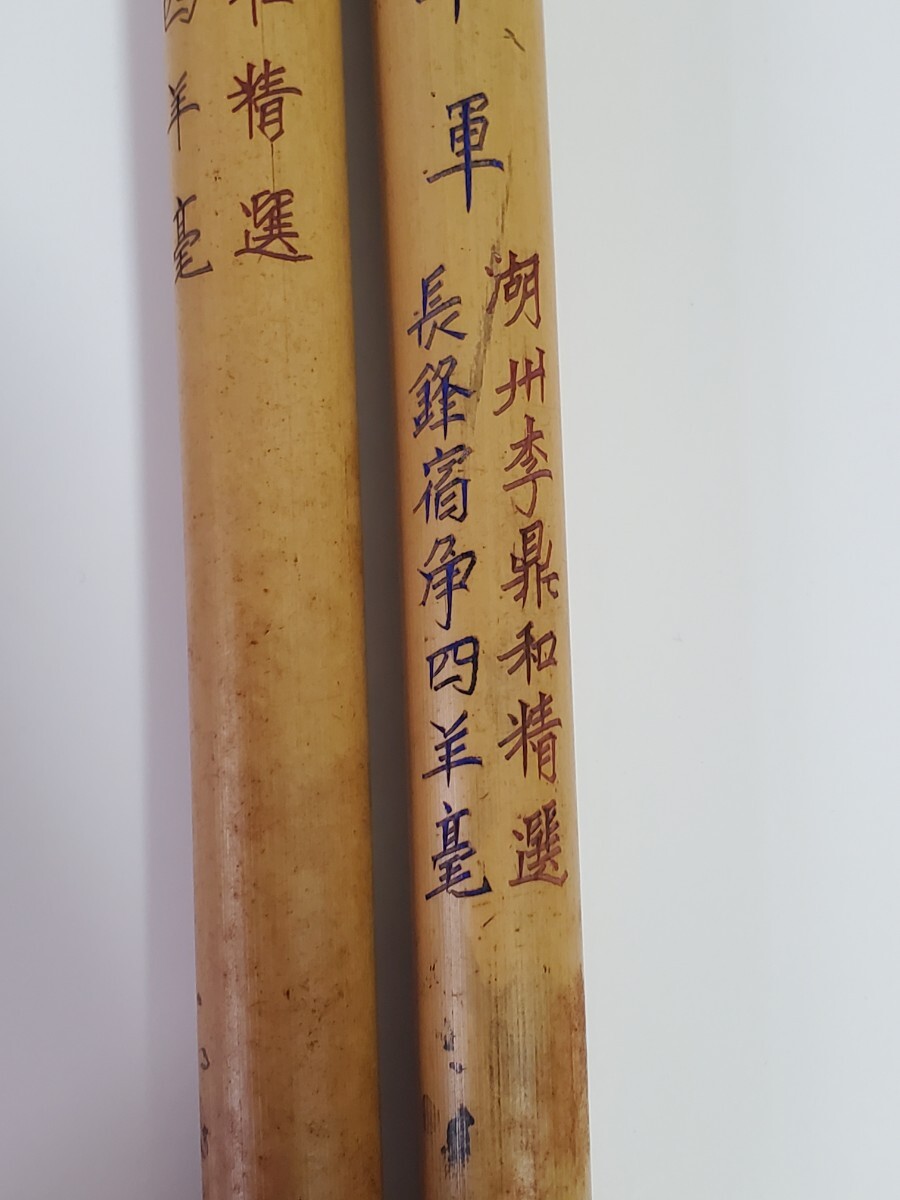 軍
湖州李鼎和精選
長鋒宿净四羊毫
精選
羊毫